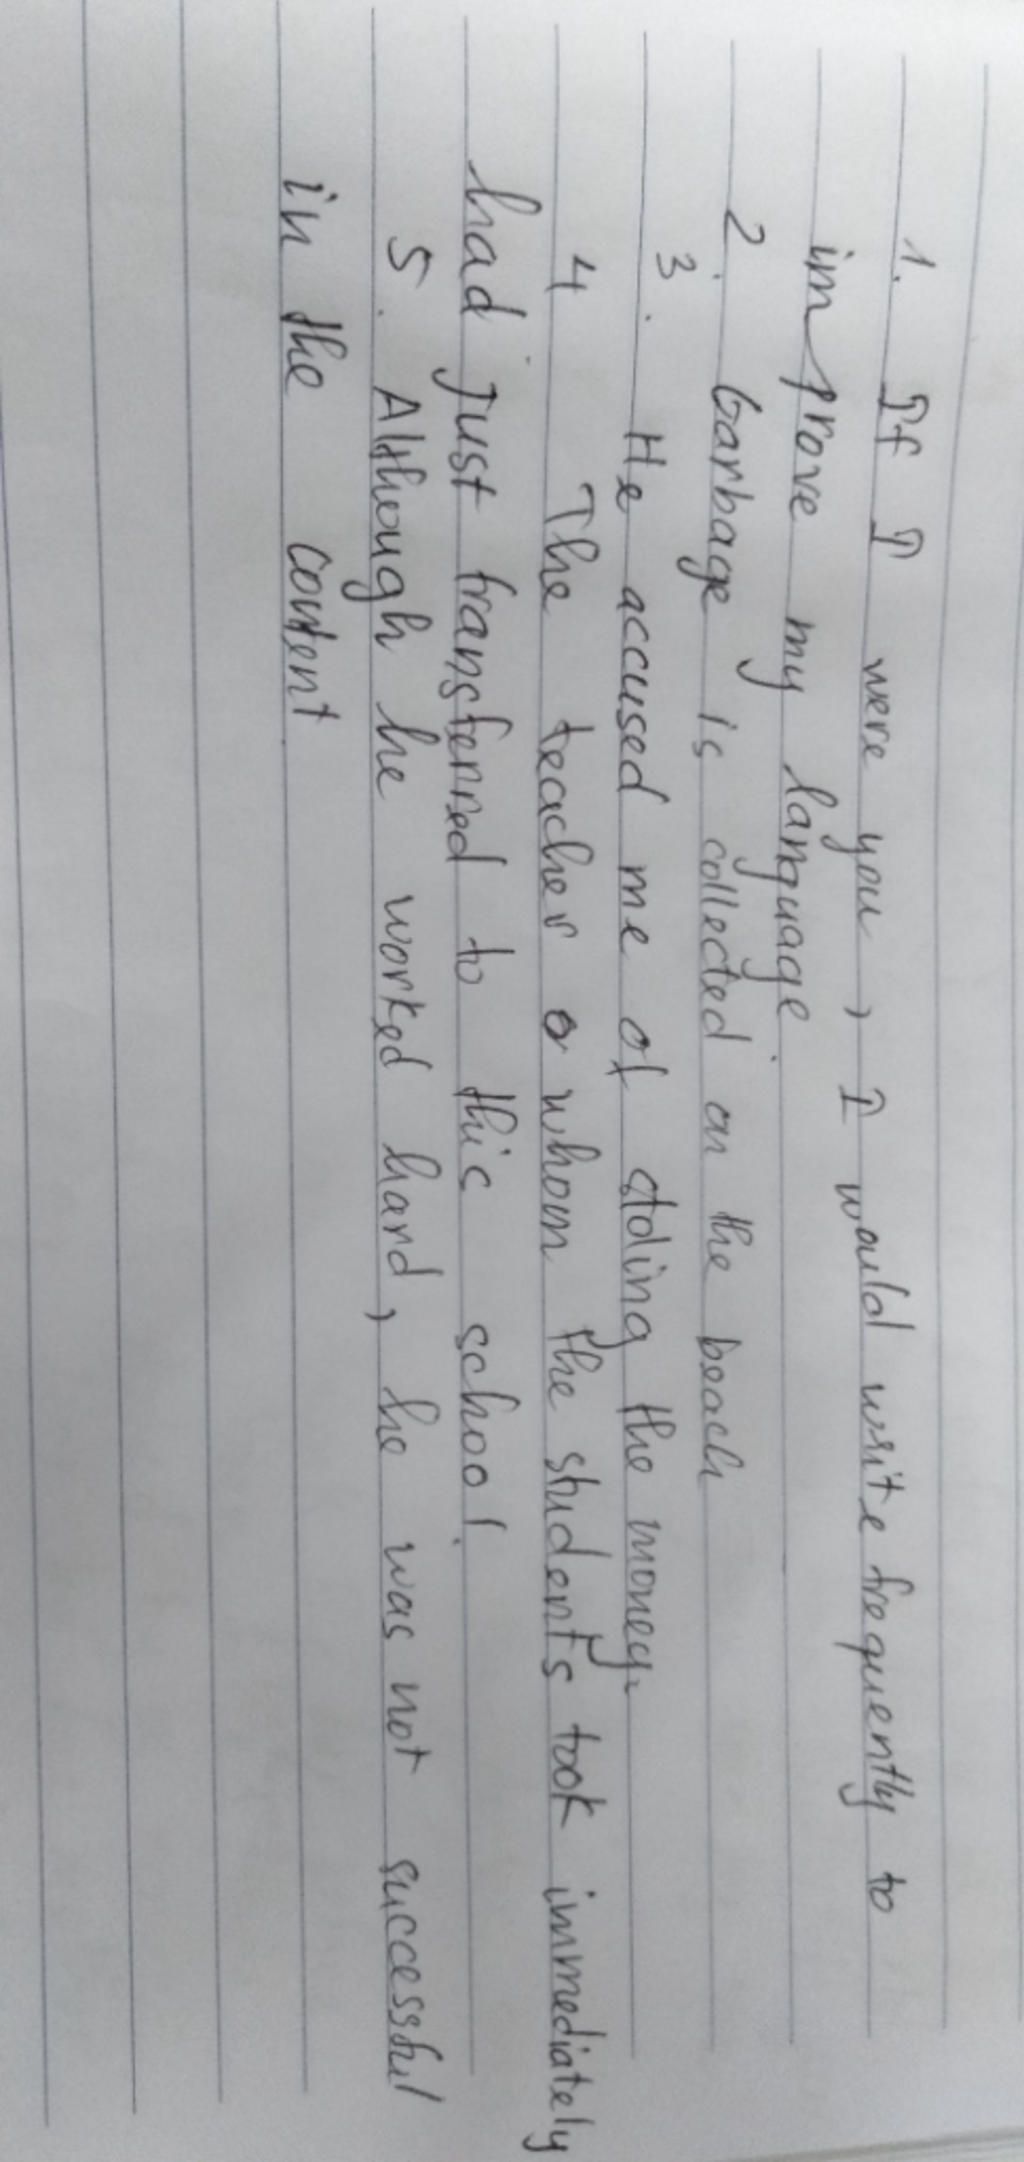 1. If I were you, I would write frequently to
improve my language.
2. Garbage is collected on the beach
3. He accused me of stoling the money.
4 The teacher or whom the students took immediately
had just transferred to this school.
5. Although he worked hard, he was not successful
in the content.